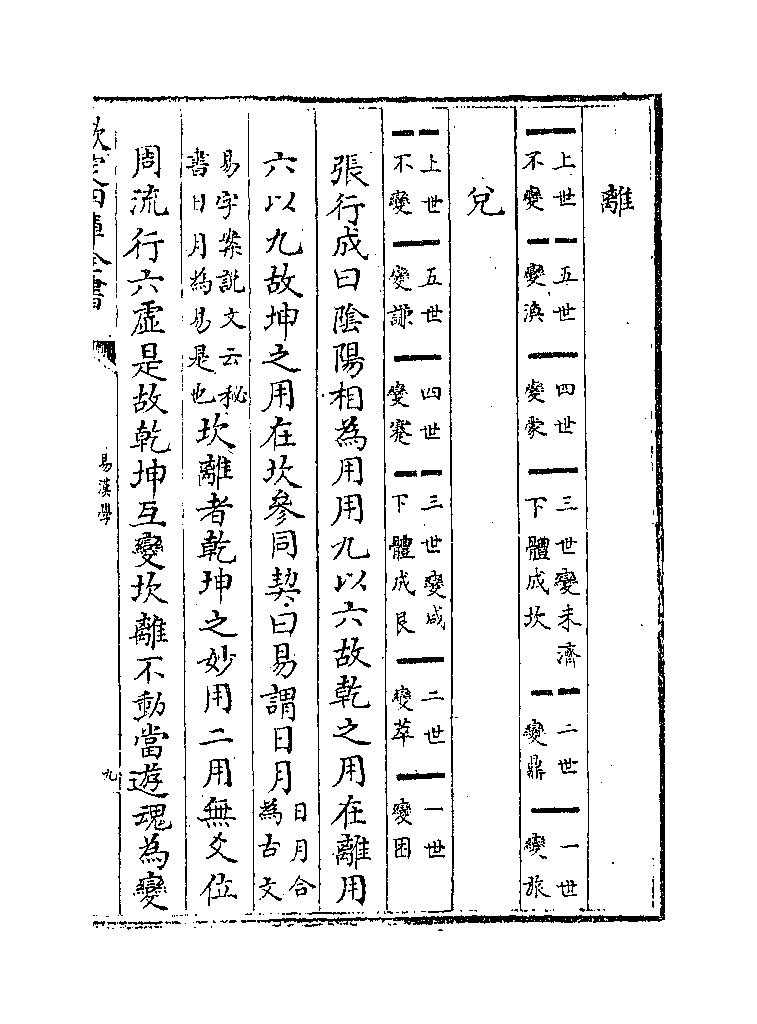 離
上世不變 五世變渙 四世變蒙 三世變未濟下體成坎 二世變鼎 一世變旅
兌
上世不變 五世變謙 四世變蹇 三世變咸下體成艮 二世變萃 一世變困
張行成曰陰陽相為用用九以六故乾之用在離用
六以九故坤之用在坎參同契曰易謂日月日月合為古文
易字案說文云秘書日月為易是也坎離者乾坤之妙用二用無爻位
周流行六虛是故乾坤互變坎離不動當遊魂為變
欽定四庫全書
易漢學
九